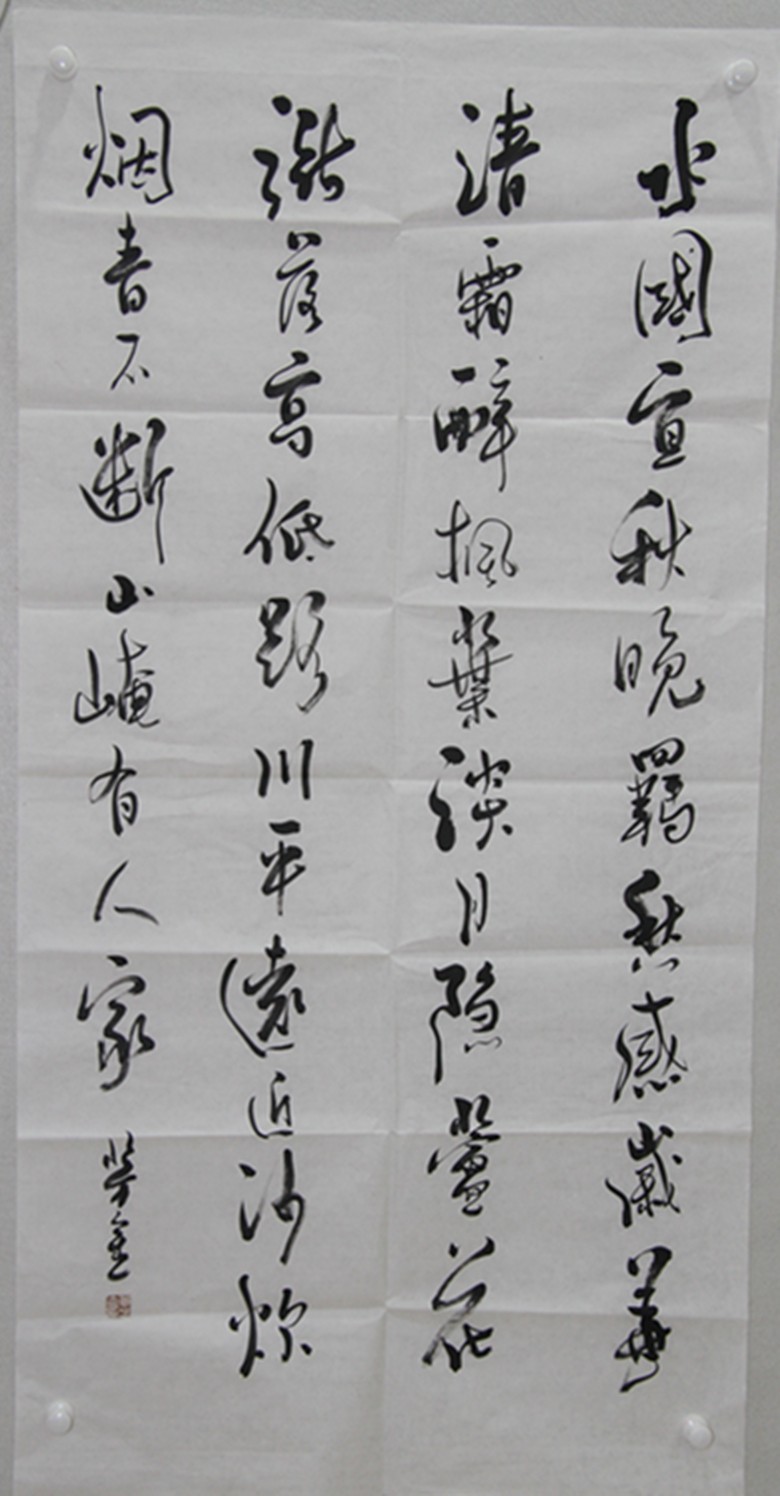 水國宜秋晚羈愁感歲華
清霜醉楓葉淡月隐蘆花
漲落高低路川平遠近沙炊
烟青不断山崦有人家